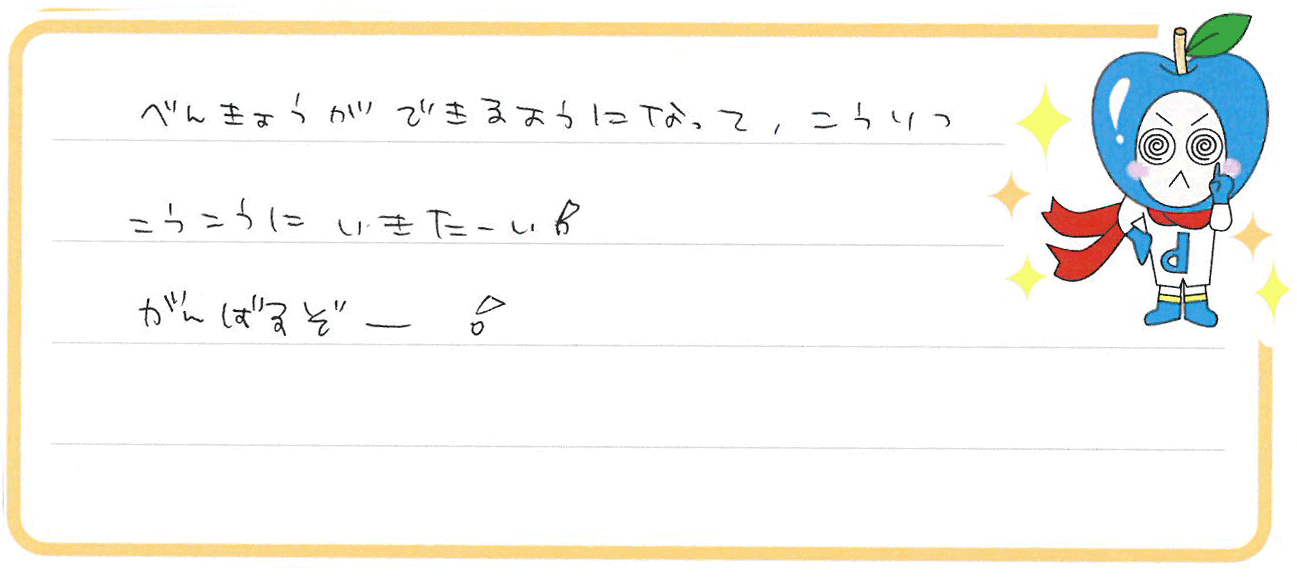 べんきょうができるようになって、こうりつ
こうこうに いきたーい!
がんばるぞー !
d